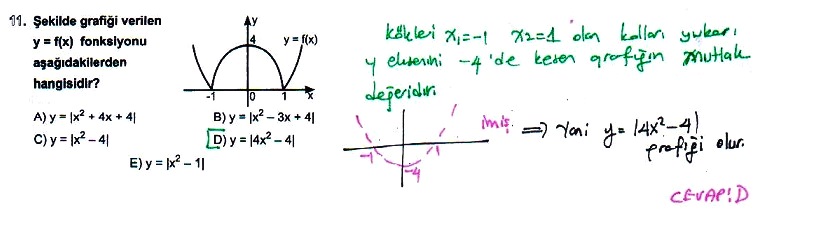 11. Şekilde grafiği verilen
y = f(x) fonksiyonu
aşağıdakilerden
hangisidir?
y
4
y = f(x)
-1
0
1
x
A) y = |x² + 4x + 4|
B) y = |x² – 3x + 4|
C) y = |x² – 4|
D) y = |4x² – 4|
E) y = |x² – 1|
kökleri x₁=-1 x2=1 olan kolları yukarı
y eksenini -4'de kesen grafiğin mutlak
değeridir.
-1
1
-4
imiş.
⇒ Yani y= |4x²-4|
grafiği olur.
CEVAP:D